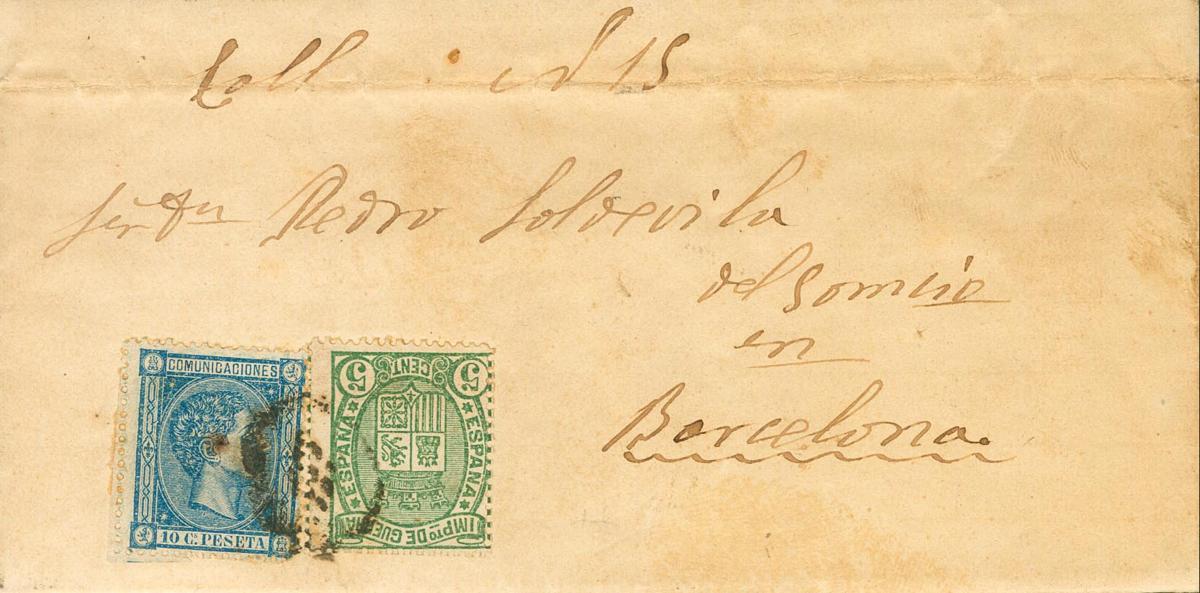 Coll 15
Sr Dn Pedro Soldevila
del Comercio
en
Barcelona.
COMUNICACIONES
10 Cs PESETA
5 CENT 5
ESPAÑA ESPAÑA
IMPTO DE GUERRA